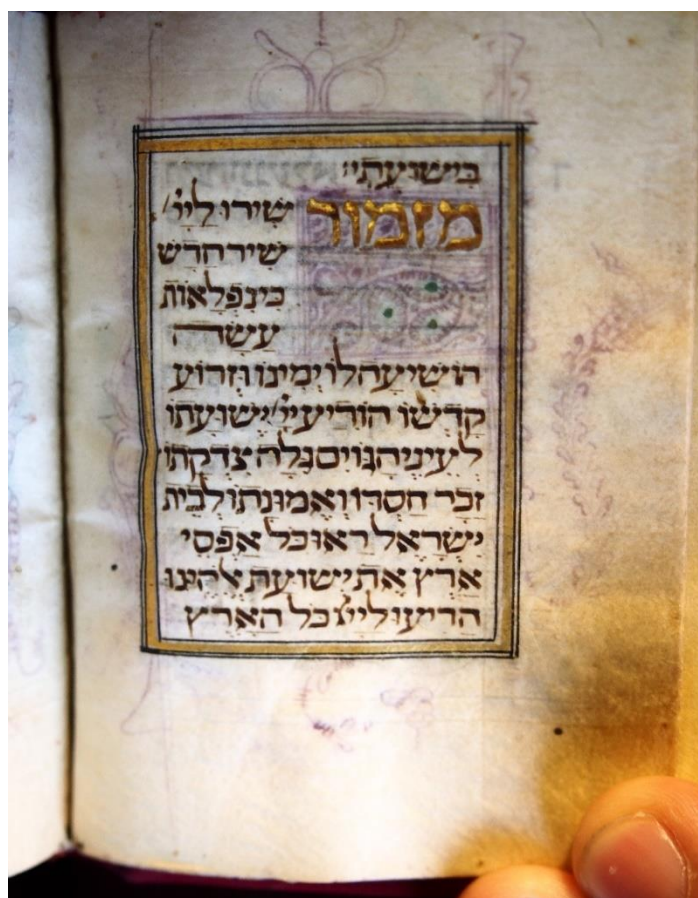 בישועתי׃
מזמור שירו ליי׳
שיר חדש
כי נפלאות
עשה
הושיעה לו ימינו וזרוע
קדשו הודיע יי׳ ישועתו
לעיני הגוים גלה צדקתו
זכר חסדו ואמונתו לבית
ישראל ראו כל אפסי
ארץ את ישועת אלהינו
הריעו ליי׳ כל הארץ